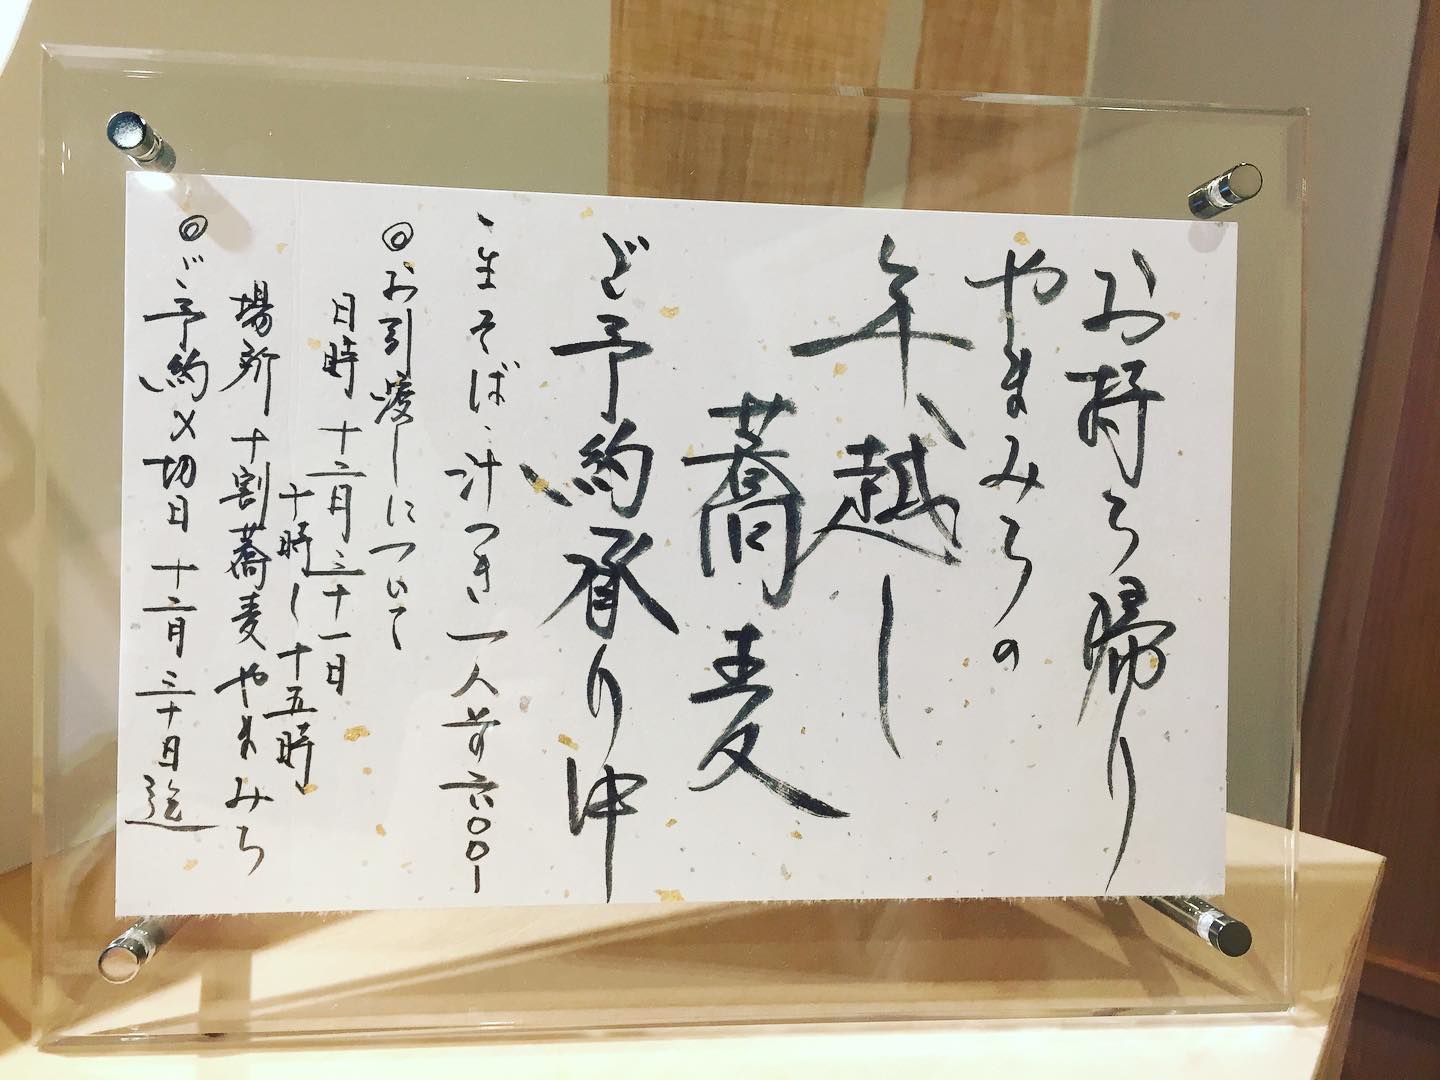 お持ち帰り
やまみちの
年越し
蕎麦
ご予約承り中
一、生そば、汁つき 一人前 六〇〇ー
◎お引渡しについて
日時 十二月三十一日
十時〜十五時
場所 十割蕎麦やまみち
◎ご予約〆切日 十二月三十日迄